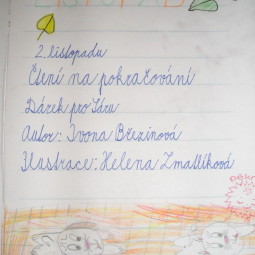 LISTOPAD
2. listopadu
Čtení na pokračování
Dárek pro Sáru
Autor: Ivona Březinová
Ilustrace: Helena Zmatlíková